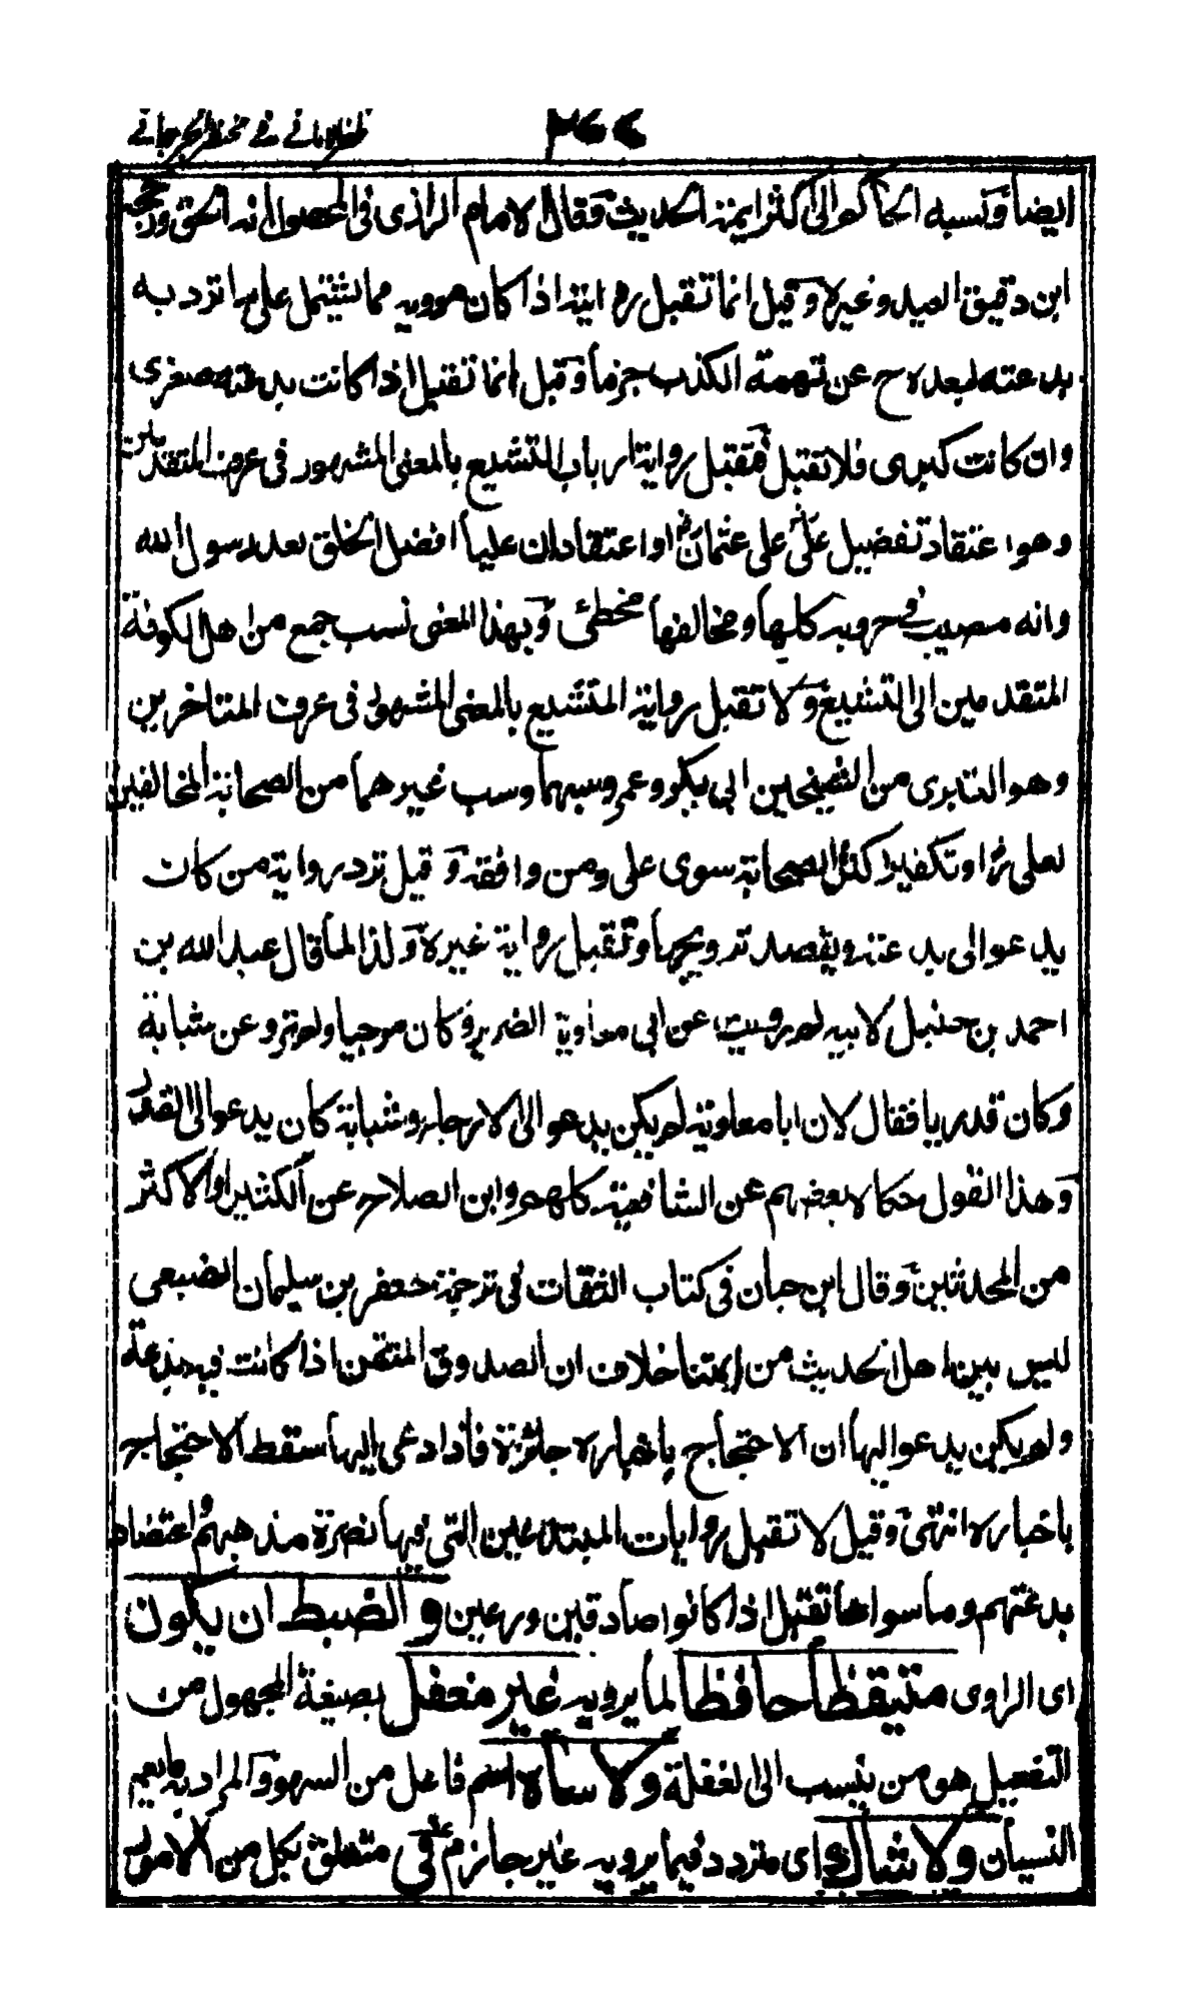 ٢٦٤ ظفر الاماني في مختصر الجرجاني
ايضا ونسبه الحاكم الى اكثر ايمة الحديث وقال الامام الرازى فى المحصول انه الحق ورجحه
ابن دقيق العيد وغيره وقيل انما تقبل رواية اذا كان مرويه مما يشتمل على ما تردد به
بدعته لبعده ح عن تهمة الكذب جزما وقيل انما تقبل اذا كانت بدعته صغرى
وان كانت كبرى فلا تقبل فتقبل رواية ارباب التشيع بالمعنى المشهور فى عرف المتقدمين
وهو اعتقاد تفضيل على على عثمان او اعتقاد ان عليا افضل الخلق بعد رسول الله
وانه مصيب في حروبه كلها ومخالفها مخطئ وبهذا المعنى نسب جمع من اهل الكوفة
المتقدمين الى التشيع ولا تقبل رواية المتشيع بالمعنى المشهور فى عرف المتاخرين
وهو التبرى من الشيخين ابى بكر وعمر وسبهما وسب غيرهما من الصحابة المخالفين
لعلى او تكفير اكثر الصحابة سوى على ومن وافقه وقيل ترد رواية من كان
يدعو الى بدعته ويقصد ترويجها وتقبل رواية غيره ولذا لما قال عبد الله بن
احمد بن حنبل لابيه لم رويت عن ابى معاوية الضرير وكان مرجيا ولم ترو عن شبابة
وكان قدريا فقال لان ابا معاوية لم يكن يدعو الى الارجاء وشبابة كان يدعو الى القدر
وهذا القول حكاه بعضهم عن الشافعية كلهم وابن الصلاح عن الكثير او الاكثر
من المحدثين وقال ابن حبان فى كتاب الثقات فى ترجمة جعفر بن سليمان الضبعى
ليس بين اهل الحديث من ايمتنا خلاف ان الصدوق المتقن اذا كانت فيه بدعة
ولم يكن يدعو اليها ان الاحتجاج باخباره جائزة فاذا دعى اليها سقط الاحتجاج
باخباره انتهى وقيل لا تقبل روايات المبتدعين التى فيها نصرة مذهبهم واعتضاد
بدعتهم وما سواها تقبل اذا كانوا صادقين ورعين والضبط ان يكون
اى الراوى متيقظا حافظا لما يرويه غير مغفل بصيغة المجهول من
التفعيل هو من ينسب الى الغفلة ولا ساه اسم فاعل من السهو والمراد به ما يعم
النسيان ولا شاك اى متردد فيما يرويه غير جازم فى متعلق بكل من الامور